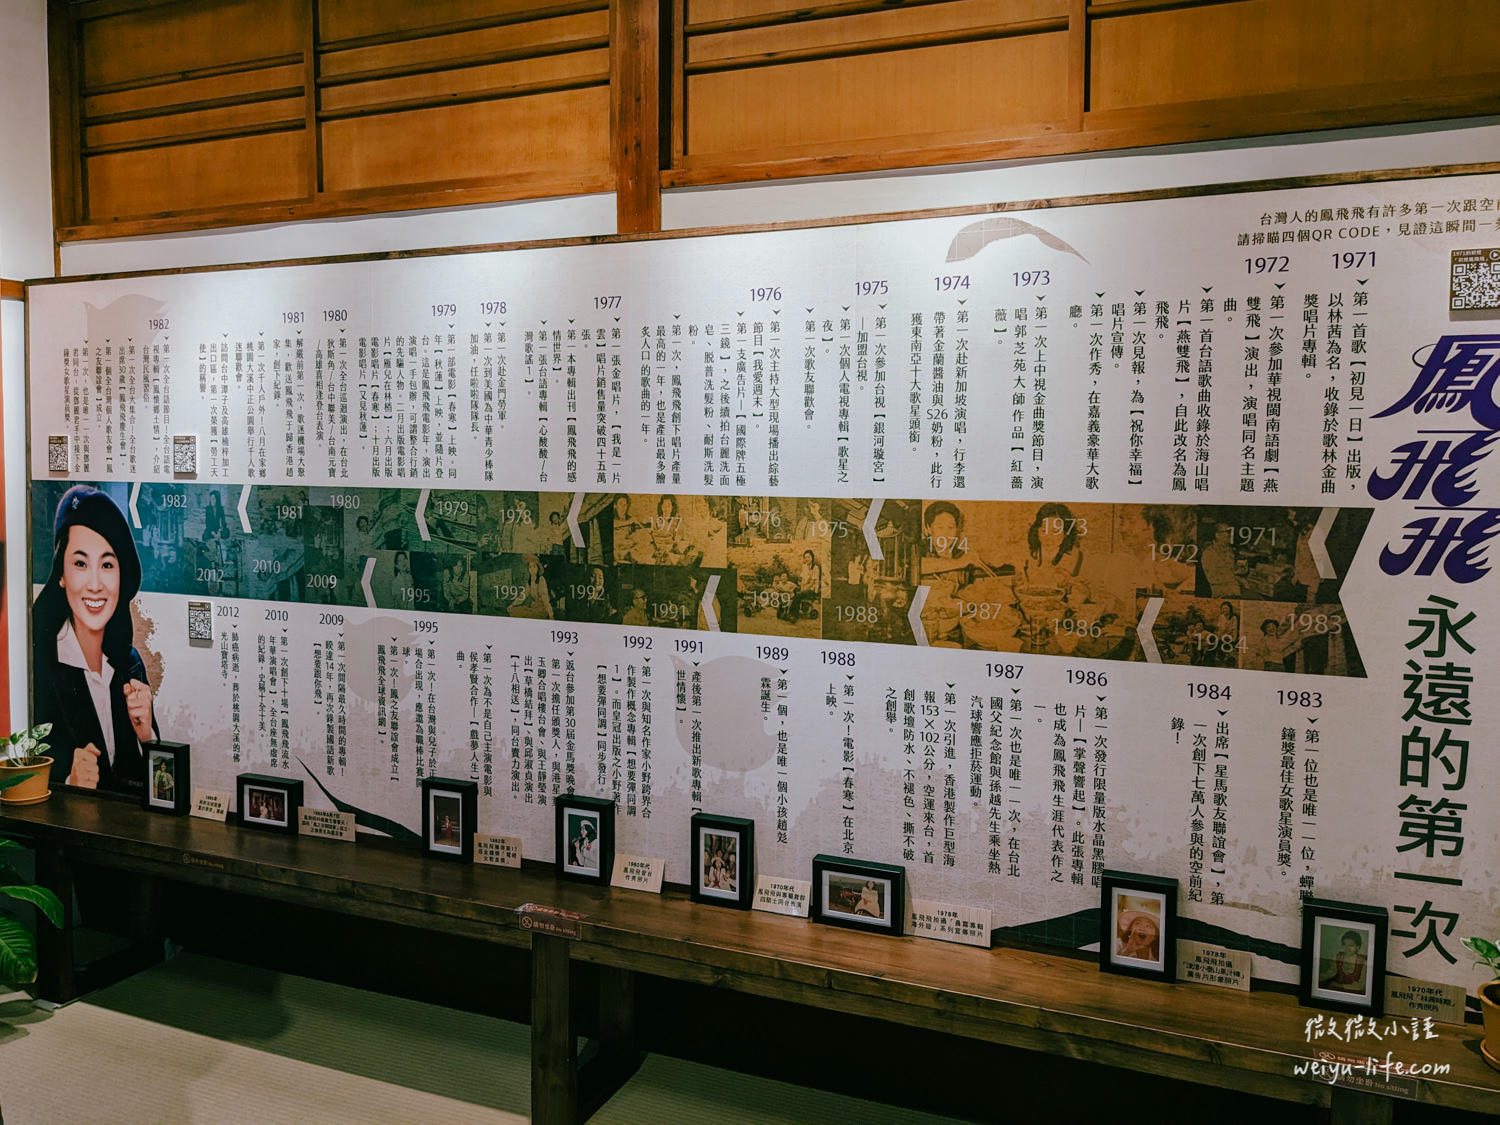 台灣人的鳳飛飛有許多第一次跟空
請掃瞄四個QR CODE,見證這瞬間一
鳳飛飛
永遠的第一次
1971
第一首歌【初見一日】出版,
以林茜為名,收錄於歌林金曲
獎唱片專輯。
1972
第一次參加華視閩南語劇【燕
雙飛】演出,演唱同名主題
曲。
第一首台語歌曲收錄於海山唱
片【燕雙飛】,自此改名為鳳
飛飛。
第一次見報,為【祝你幸福】
唱片宣傳。
第一次作秀,在嘉義豪華大歌
廳。
1973
第一次上中視金曲獎節目,演
唱郭芝苑大師作品【紅薔
薇】
1974
第一次赴新加坡演唱,行李還
帶著金蘭醬油與S26奶粉,此行
獲東南亞十大歌星頭銜。
1975
第一次參加台視【銀河璇宮】
—加盟台視。
第一次個人電視專輯【歌星之
夜】。
第一次歌友聯歡會。
1976
第一次主持大型現場播出綜藝
節目【我愛週末】。
第一支廣告片—【國際牌五極
三鏡】,之後續拍台麗洗面
皂、脫普洗髮粉、耐斯洗髮
粉。
第一次,鳳飛飛創下唱片產量
最高的一年,也是產出最多膾
炙人口的歌曲的一年。
1977
第一張金唱片,【我是一片
雲】唱片銷售量突破四十五萬
張。
第一本專輯出刊【鳳飛飛的感
情世界】。
第一張台語專輯【心酸酸/台
灣歌謠1】
1978
第一次赴金門勞軍。
第一次到美國為中華青少棒隊
加油,任啦啦隊隊長。
1979
第一部電影【春寒】上映。同
年【秋蓮】上映,並隨片登
台。這是鳳飛飛電影年,演出
演唱一手包辦,可謂整合行銷
的先驅人物。二月出版電影唱
片【雁兒在林梢】;六月出版
電影唱片【春寒】;十月出版
電影唱片【又見秋蓮】。
1980
第一次全台巡迴演出,在台北
狄斯角/台中聯美/台南元寶
/高雄喜相逢登台表演。
1981
解嚴前第一次,歌迷機場大聚
集,歡送鳳飛飛于歸香港趙
家,創下紀錄。
第一次千人戶外!八月在家鄉
桃園大溪中正公園舉行千人歌
迷聯歡會。
訪問台中潭子及高雄楠梓加工
出口區,第一次榮獲【勞工天
使】的稱譽。
1982
第一次全台語節目!全台語電
視專輯【風懷鄉土情】,介紹
台灣民風習俗。
第一次全台大集合!全台歌迷
出席30歲【鳳飛飛慶生會】。
第一個全台灣個人歌友會【鳳
之友聯誼會】成立。
第一次,也是唯一一次與鄧麗
君同台,從鄧麗君手中接下金
鐘獎女歌星演員獎。
1982 1981 1980 1979 1978 1977 1976 1975 1974 1973 1972 1971
2012 2010 2009 1995 1993 1992 1991 1989 1988 1987 1986 1984 1983
1983
第一位也是唯一一位,蟬聯
鐘獎最佳女歌星演員獎。
1984
出席【星馬歌友聯誼會】,第
一次創下七萬人參與的空前紀
錄!
1986
第一次發行限量版水晶黑膠唱
片—【掌聲響起】。此張專輯
也成為鳳飛飛生涯代表作之
一。
1987
第一次也是唯一一次,在台北
國父紀念館與孫越先生乘坐熱
汽球響應拒菸運動。
第一次引進,香港製作巨型海
報153×102公分,空運來台,首
創歌壇防水、不褪色、撕不破
之創舉。
1988
第一次!電影【春寒】在北京
上映。
1989
第一個,也是唯一個小孩趙彣
霖誕生。
1991
產後第一次推出新歌專輯
世情懷】。
1992
第一次與知名作家小野跨界合
作製作概念專輯【想要彈同調
1】。而皇冠出版之小野著作
【想要彈同調】同步發行。
1993
返台參加第30屆金馬獎晚會
第一次擔任頒獎人,與港星
玉卿合唱樓台會、與王靜瑩演
出【草橋結拜】、與邱淑貞演出
【十八相送】,同台賣力演出。
第一次為不是自己主演電影與
侯孝賢合作-【戲夢人生】
曲。
1995
第一次!在台灣與兒子於正
場合出現,應邀為職棒比賽開
球。
第一次!鳳之友聯誼會成立【
鳳飛飛全球資訊網】。
2009
第一次間隔最久時間的專輯!
睽違14年,再次錄製國語新歌
【想要跟你飛】。
2010
第一次創下十場【鳳飛飛流水
年華演唱會】,全台座無虛席
的紀錄,史稱十全十美。
2012
肺癌病逝,葬於桃園大溪的佛
光山寶塔寺。
1980年代
鳳飛飛登台
作秀照片
1970年代
1978年
鳳飛飛拍攝
廣告片形象照片
1970年代
鳳飛飛「林茜時期」
作秀照片
請勿坐臥 No sitting
請勿坐臥 No sitting
微微小謹
weiyu-life.com